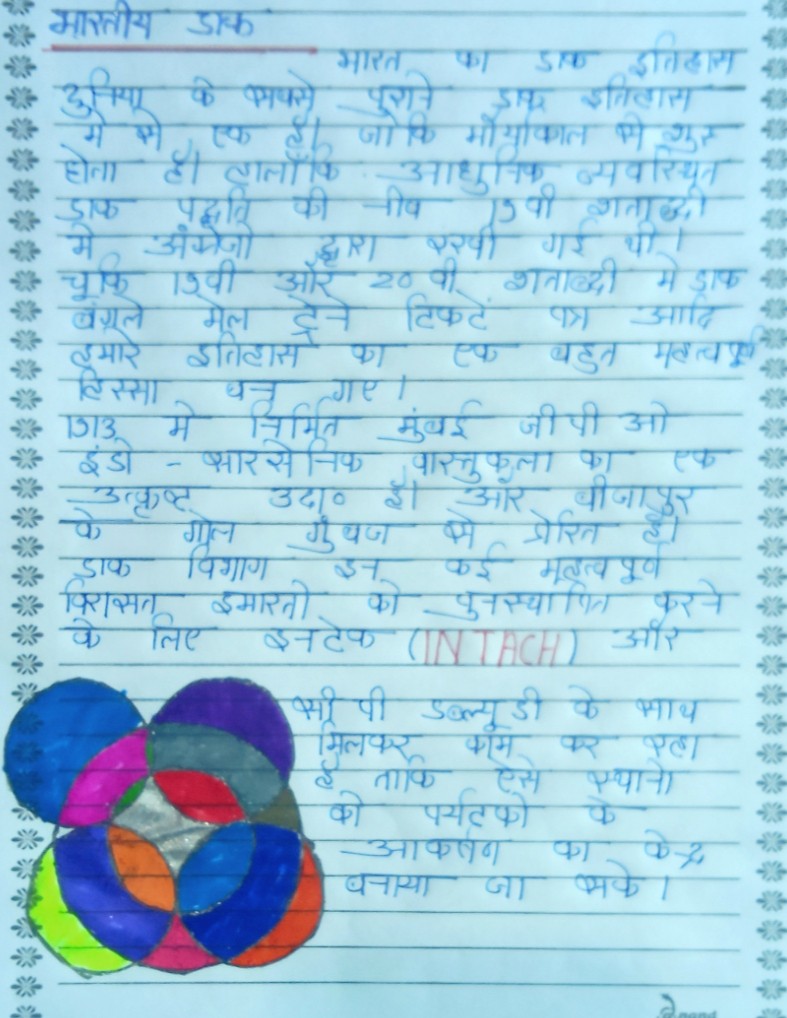 भारतीय डाक
भारत का डाक इतिहास
दुनिया के सबसे पुराने डाक इतिहास
में से एक है। जोकि मौर्यकाल से शुरु
होता है। हालाँकि आधुनिक व्यवस्थित
डाक पद्धति की नीव 19वी शताब्दी
में अंग्रेजो द्वारा रखी गई थी।
चूंकि 19वी और 20 वी शताब्दी में डाक
बंगले मेल ट्रेने टिकटें पत्र आदि
हमारे इतिहास का एक बहुत महत्वपूर्ण
हिस्सा बन गए।
1913 में निर्मित मुंबई जी पी ओ
इंडो - सारसेनिक वास्तुकला का एक
उत्कृष्ट उदा० है। और बीजापुर
के गोल गुंबज से प्रेरित है।
डाक विभाग इन कई महत्वपूर्ण
विरासत इमारतो को पुनस्थापित करने
के लिए इनटेक (INTACH) और
सी पी डब्ल्यू डी के साथ
मिलकर काम कर रहा
है ताकि ऐसे स्थानो
को पर्यटको के
आकर्षण का केन्द्र
बनाया जा सके।